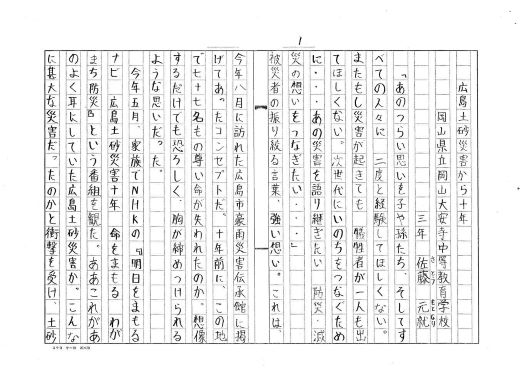 1
広島土砂災害から十年
岡山県立岡山大安寺中等教育学校
三年 佐藤 元就
「あのつらい思いを子や孫たち、そしてす
べての人々に 二度と経験してほしくない。
またもし災害が起きても 犠牲者が一人も出
てほしくない。次世代にいのちをつなぐため
に・・・あの災害を語り継ぎたい 防災・減
災の想いをつなぎたい・・・・」
被災者の振り絞る言葉、強い想い。これは、
今年八月に訪れた広島市豪雨災害伝承館に掲
げてあったコンセプトだ。十年前に、この地
で七十七名もの尊い命が失われたのか、想像
するだけでも恐ろしく、胸が締めつけられる
ような思いだった。
今年五月、家族でNHKの『明日をまもる
ナビ 広島土砂災害十年 命をまもる わが
まち防災』という番組を観た。ああこれがあ
のよく耳にしていた広島土砂災害か。こんな
に甚大な災害だったのかと衝撃を受け、土砂